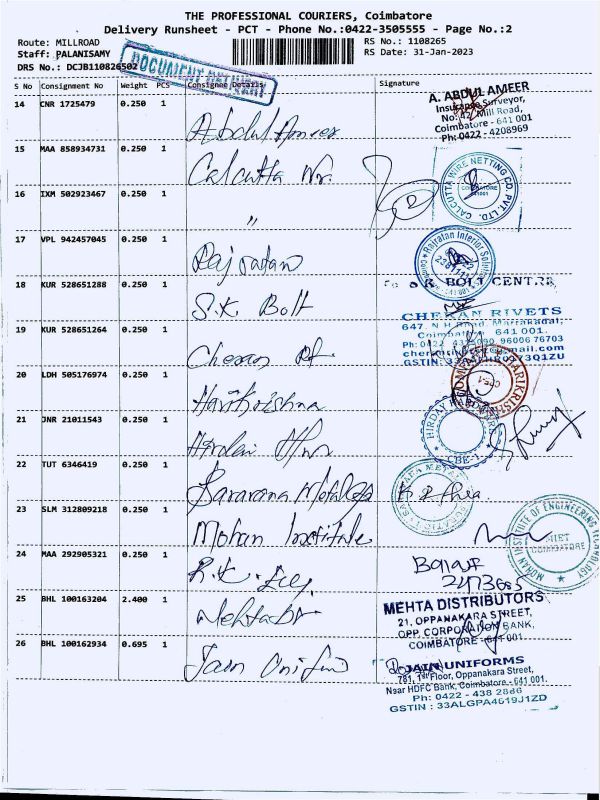 THE PROFESSIONAL COURIERS, Coimbatore
Delivery Runsheet - PCT - Phone No.:0422-3505555 - Page No.:2
Route: MILLROAD
RS No.: 1108265
Staff: PALANISAMY
RS Date: 31-Jan-2023
DRS No.: DCJB110826502
DOCUMENT
S No Consignment No Weight PCS Consignee Details Signature
14 CNR 1725479 0.250 1 Abdul Ameer
A. ABDUL AMEER
Insurance Surveyor,
No: 42, Mill Road,
Coimbatore - 641 001
Ph: 0422 - 4208969
15 MAA 858934731 0.250 1 Calcutta Wr.
CALCUTTA WIRE NETTING CO. PVT. LTD.
COIMBATORE
641001
16 IXM 502923467 0.250 1 "
17 VPL 942457045 0.250 1 Rajratan
Rajratan Interior Solutions
18 KUR 528651288 0.250 1 S.K. Bolt
BOLT CENTRE
19 KUR 528651264 0.250 1 Cheran
CHERAN RIVETS
641 001.
96006 76703
20 LDH 505176974 0.250 1 Harikrishna
21 JNR 21011543 0.250 1
CBE-1
22 TUT 6346419 0.250 1 Saravana Metal
23 SLM 312809218 0.250 1 Mohan Institute
MOHAN INSTITUTE OF ENGINEERING TECHNOLOGY
MIET
COIMBATORE
24 MAA 292905321 0.250 1 R.K.
25 BHL 100163204 2.400 1 Mehta
MEHTA DISTRIBUTORS
21, OPPANAKARA STREET,
OPP. CORPORATION BANK,
COIMBATORE - 641 001.
26 BHL 100162934 0.695 1 Jain Unifo
JAIN UNIFORMS
781, 1st Floor, Oppanakara Street,
Near HDFC Bank, Coimbatore - 641 001.
Ph: 0422 - 438 2866
GSTIN : 33ALGPA4619J1ZD